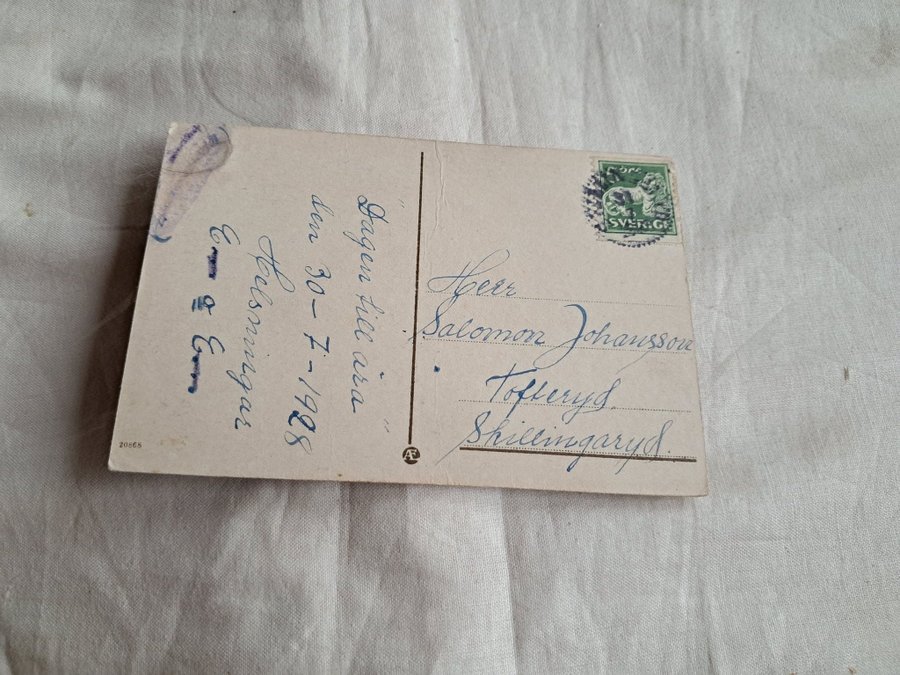 "Dagen till ära"
den 30-7-1928
Helsningar
E- o E-
20868
AE
SVERIGE
Herr
Salomon Johansson
Tofteryd.
Skillingaryd.